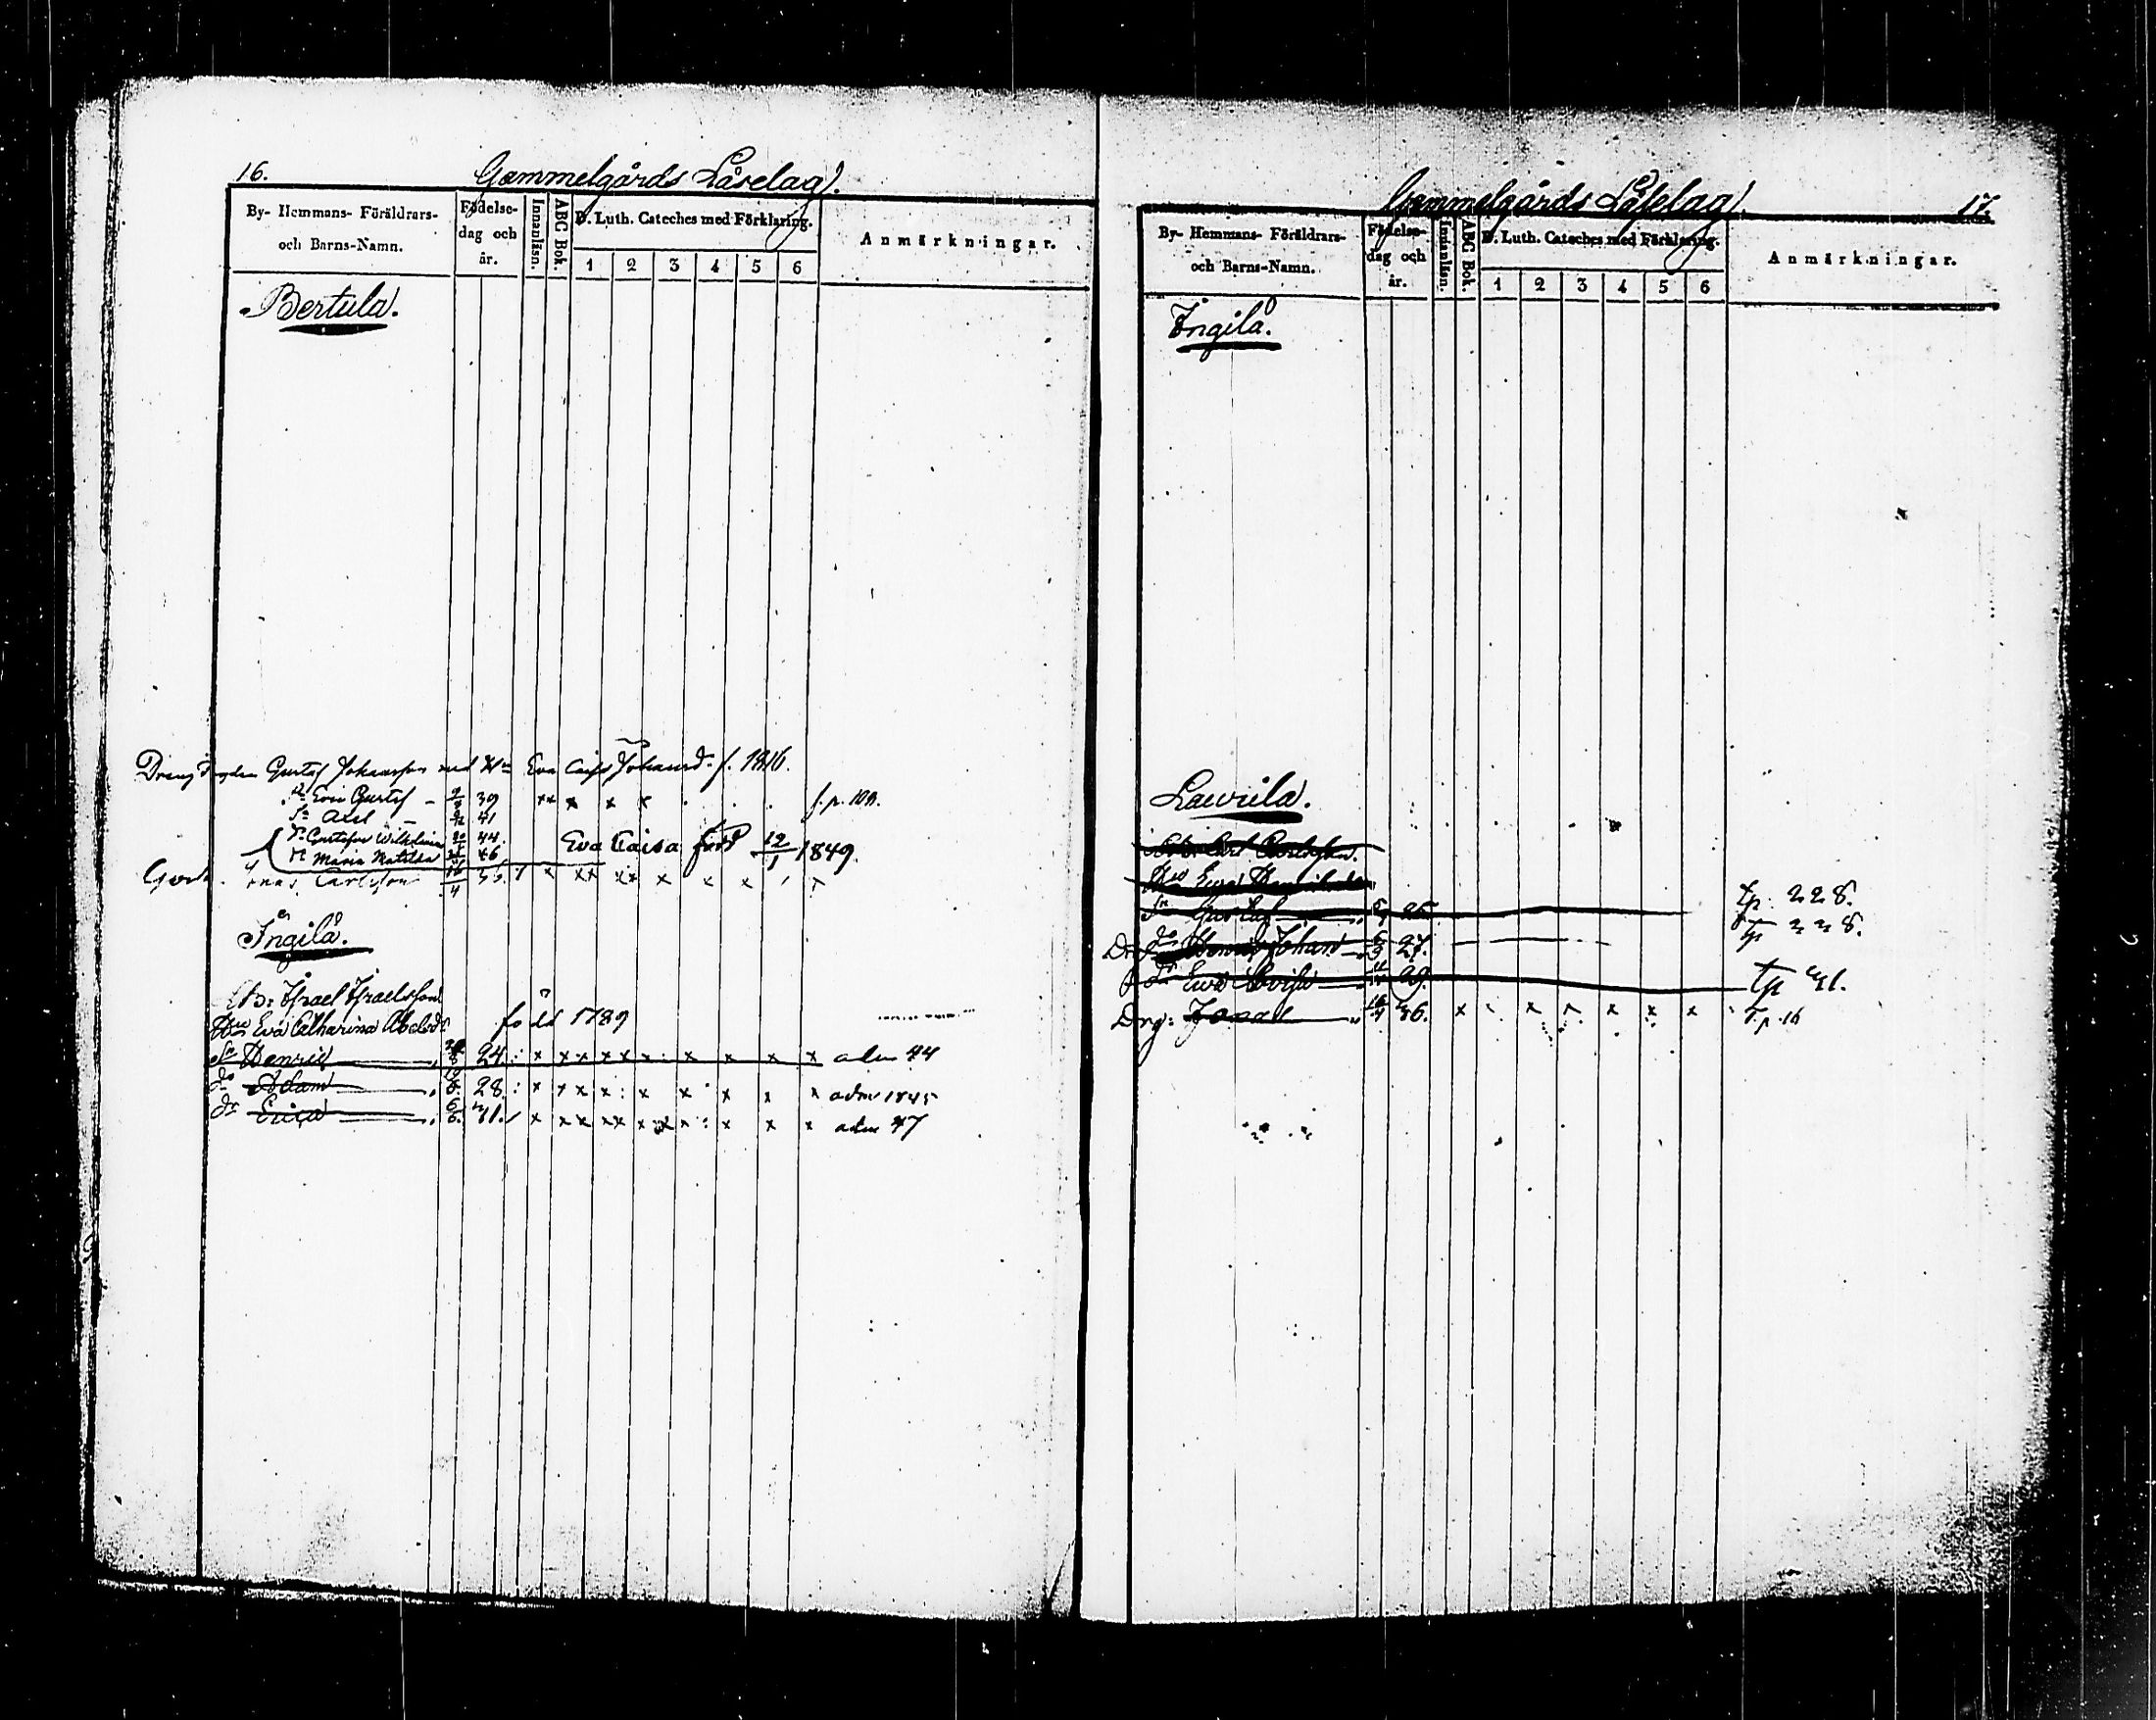 16.
Gammelgårds Låselag.
By- Hemmans- Föräldrars- och Barns-Namn.
Födelse- dag och år.
Innanläsn.
ABC Bok.
D. Luth. Cateches med Förklaring.
1 2 3 4 5 6
Anmärkningar.
Bertula.
Gustaf Johansson med Eva Caisa Johansd. f. 1816.
Eric Gustaf - 39 xx x x x
Sn Axel - 41
Gustafva Wilhelmina 44.
Maria Matilda 46
Eva Caisa född 12/1 1849.
Jonas Carlsson 16/4 36. x xx xx x x x
Ingilä.
Ab: Israel Israelsson
Hu Eva Catharina Abelsdr född 1789
Sn Henric 24. x x x x x x x x x x adm 44
do Adam 28. x x x x x x x x x adm 1845
dr Erica 6/6. 31. x x x x x x x x x x adm 47
Gammelgårds Låselag.
17.
By- Hemmans- Föräldrars- och Barns-Namn.
Födelse- dag och år.
Innanläsn.
ABC Bok.
D. Luth. Cateches med Förklaring.
1 2 3 4 5 6
Anmärkningar.
Ingilä.
Laurila.
Carl Carlsson.
Hu Eva
Sn Gustaf 25. tp. 228.
do Johan 27. tp 228.
dr Eva Lovisa 29. tp 31.
Drg: Jonas 16/4 36. x x x x x x T.p. 16